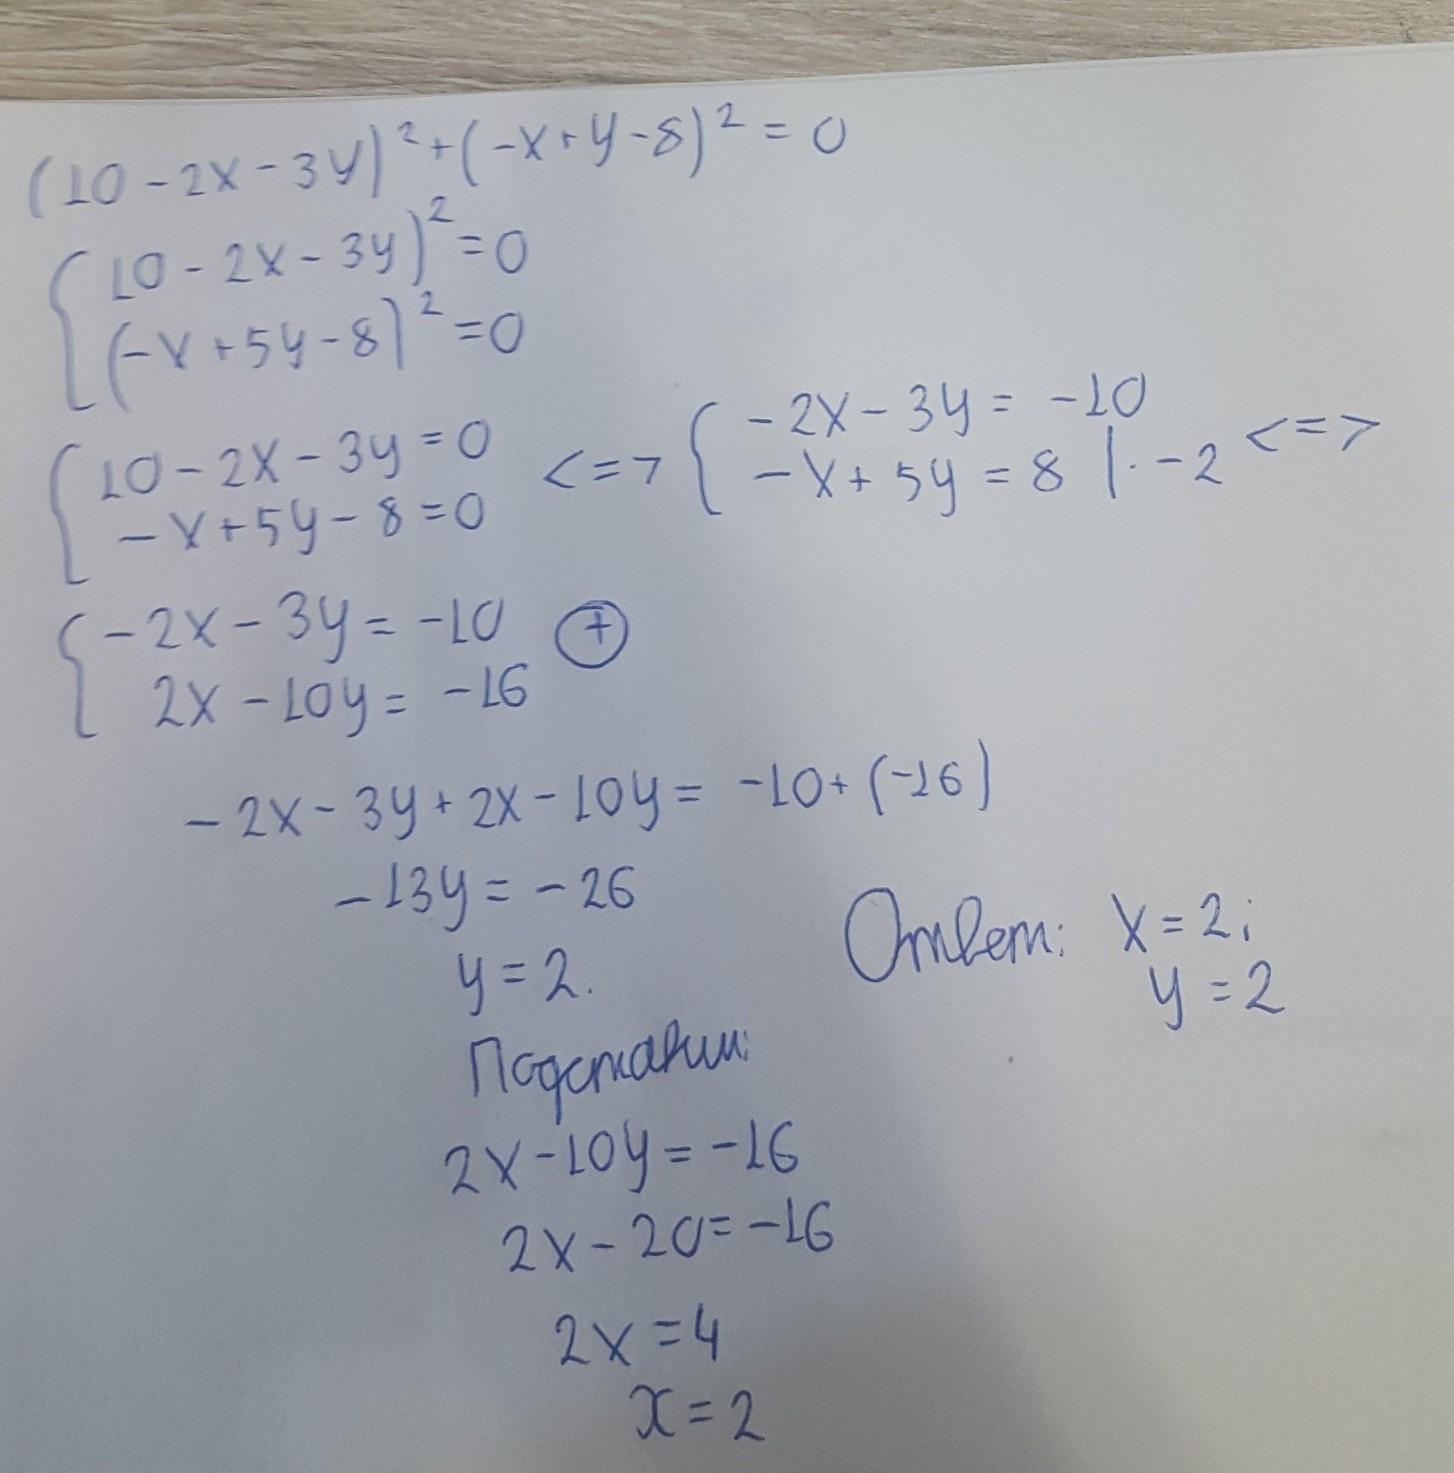 (10 - 2x - 3y)² + (-x + y - 8)² = 0
{ 10 - 2x - 3y)² = 0
(-x + 5y - 8)² = 0
{ 10 - 2x - 3y = 0 <=> { -2x - 3y = -10 <=>
-x + 5y - 8 = 0 -x + 5y = 8 | · -2
{ -2x - 3y = -10 ⊕
2x - 10y = -16
-2x - 3y + 2x - 10y = -10 + (-16)
-13y = -26
y = 2.
Ответ: x = 2;
y = 2
Подставим:
2x - 10y = -16
2x - 20 = -16
2x = 4
x = 2